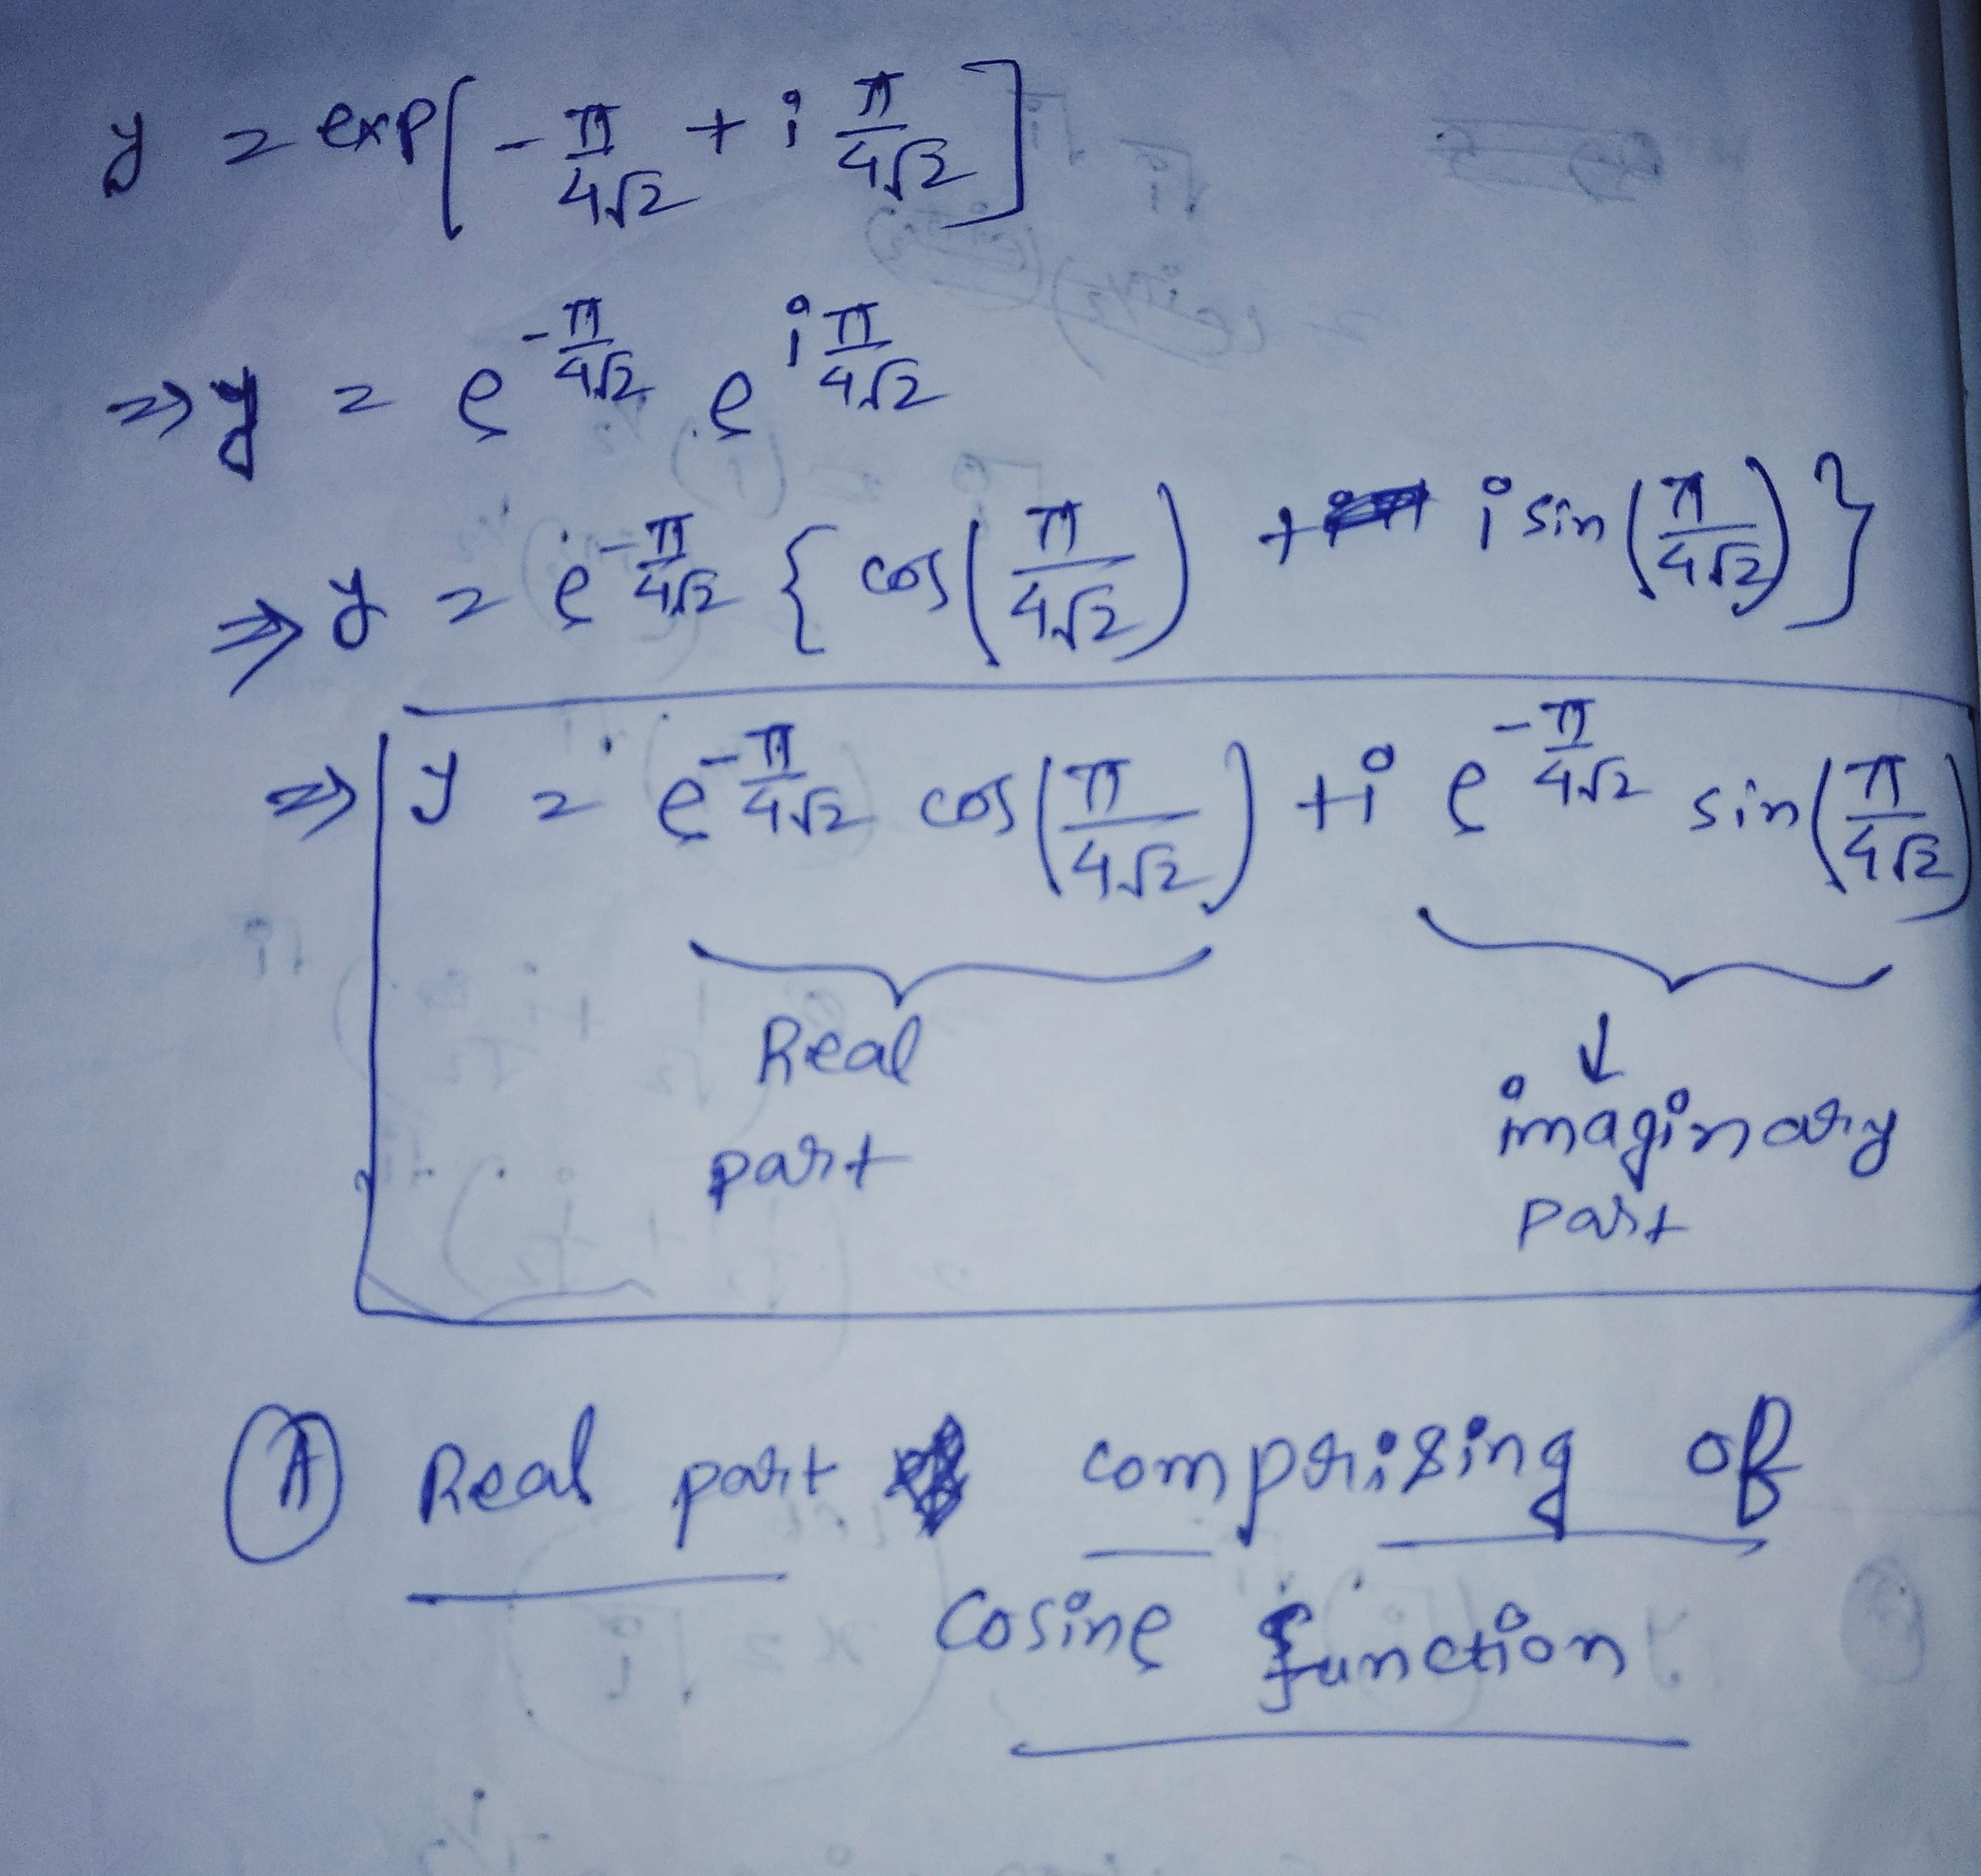 y = exp[-π/4√2 + i π/4√2]
⇒ y = e^{-π/4√2} . e^{i π/4√2}
⇒ y = e^{-π/4√2} { cos(π/4√2) + i sin(π/4√2) }
⇒ y = e^{-π/4√2} cos(π/4√2) + i e^{-π/4√2} sin(π/4√2)
Real part
↓
imaginary part
(A) Real part comprising of
Cosine function